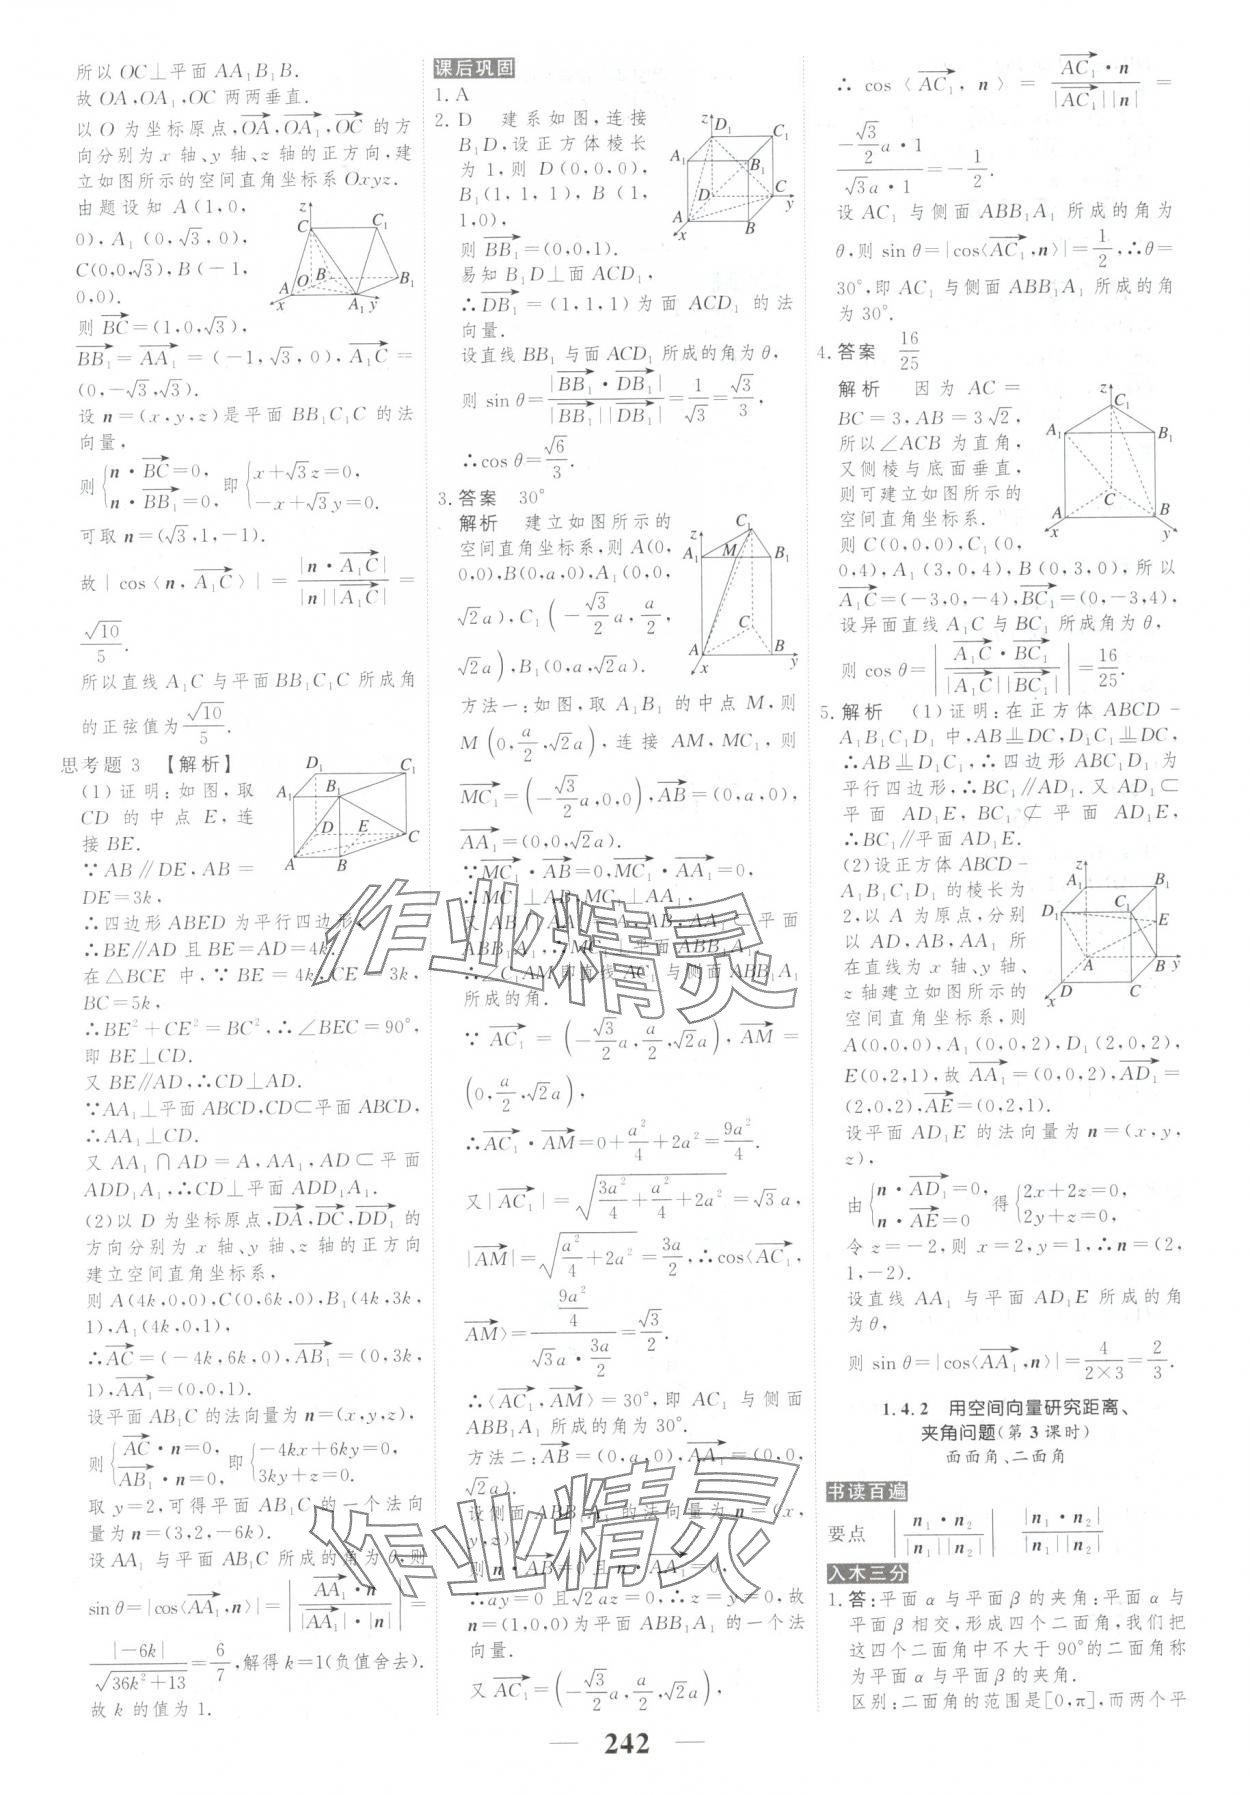 所以 OC⊥平面 AA₁B₁B.
故 OA,OA₁,OC 两两垂直.
以 O 为坐标原点,OA→,OA₁→,OC→ 的方
向分别为 x 轴、y 轴、z 轴的正方向,建
立如图所示的空间直角坐标系 Oxyz.
由题设知 A(1,0,
0),A₁(0,√3,0),
C(0,0,√3),B(−1,
0,0).
则 BC→=(1,0,√3),
BB₁→=AA₁→=(−1,√3,0),A₁C→=
(0,−√3,√3).
设 n=(x,y,z)是平面 BB₁C₁C 的法
向量,
则{n·BC→=0, n·BB₁→=0, 即{x+√3z=0, −x+√3y=0.
可取 n=(√3,1,−1).
故|cos〈n,A₁C→〉|=|n·A₁C→|/(|n||A₁C→|)=
√10/5.
所以直线 A₁C 与平面 BB₁C₁C 所成角
的正弦值为√10/5.
思考题 3 【解析】
(1)证明:如图,取
CD 的中点 E,连
接 BE.
∵AB∥DE,AB=
DE=3k,
∴四边形 ABED 为平行四边形,
∴BE∥AD 且 BE=AD=4k.
在△BCE 中,∵BE=4k,CE=3k,
BC=5k,
∴BE²+CE²=BC²,∴∠BEC=90°,
即 BE⊥CD.
又 BE∥AD,∴CD⊥AD.
∵AA₁⊥平面 ABCD,CD⊂平面 ABCD,
∴AA₁⊥CD.
又 AA₁∩AD=A,AA₁,AD⊂平面
ADD₁A₁,∴CD⊥平面 ADD₁A₁.
(2)以 D 为坐标原点,DA→,DC→,DD₁→ 的
方向分别为 x 轴、y 轴、z 轴的正方向
建立空间直角坐标系,
则 A(4k,0,0),C(0,6k,0),B₁(4k,3k,
1),A₁(4k,0,1),
∴AC→=(−4k,6k,0),AB₁→=(0,3k,
1),AA₁→=(0,0,1).
设平面 AB₁C 的法向量为 n=(x,y,z),
则{AC→·n=0, AB₁→·n=0, 即{−4kx+6ky=0, 3ky+z=0.
取 y=2,可得平面 AB₁C 的一个法向
量为 n=(3,2,−6k).
设 AA₁ 与平面 AB₁C 所成的角为 θ,则
sin θ=|cos〈AA₁→,n〉|=|AA₁→·n/(|AA₁→|·|n|)|=
|−6k|/√(36k²+13)=6/7,解得 k=1(负值舍去).
故 k 的值为 1.
课后巩固
1. A
2. D 建系如图,连接
B₁D,设正方体棱长
为 1,则 D(0,0,0),
B₁(1,1,1),B(1,
1,0),
则 BB₁→=(0,0,1).
易知 B₁D⊥面 ACD₁,
∴DB₁→=(1,1,1)为面 ACD₁ 的法
向量.
设直线 BB₁ 与面 ACD₁ 所成的角为 θ,
则 sin θ=|BB₁→·DB₁→|/(|BB₁→||DB₁→|)=1/√3=√3/3,
∴cos θ=√6/3.
3. 答案 30°
解析 建立如图所示的
空间直角坐标系,则 A(0,
0,0),B(0,a,0),A₁(0,0,
√2a),C₁(−√3/2 a,a/2,
√2a),B₁(0,a,√2a).
方法一:如图,取 A₁B₁ 的中点 M,则
M(0,a/2,√2a),连接 AM,MC₁,则
MC₁→=(−√3/2 a,0,0),AB→=(0,a,0),
AA₁→=(0,0,√2a).
∵MC₁→·AB→=0,MC₁→·AA₁→=0,
∴MC₁⊥AB,MC₁⊥AA₁,
又 AB∩AA₁=A,AB,AA₁⊂平面
ABB₁A₁,∴MC₁⊥平面 ABB₁A₁.
∴∠C₁AM 即直线 AC₁ 与侧面 ABB₁A₁
所成的角.
∵AC₁→=(−√3/2 a,a/2,√2a),AM→=
(0,a/2,√2a),
∴AC₁→·AM→=0+a²/4+2a²=9a²/4.
又|AC₁→|=√(3a²/4+a²/4+2a²)=√3a,
|AM→|=√(a²/4+2a²)=3a/2,∴cos〈AC₁→,
AM→〉=(9a²/4)/(√3a·3a/2)=√3/2.
∴〈AC₁→,AM→〉=30°,即 AC₁ 与侧面
ABB₁A₁ 所成的角为 30°.
方法二:AB→=(0,a,0),AA₁→=(0,0,
√2a).
设侧面 ABB₁A₁ 的法向量为 n=(x,
y,z),
则 n·AB→=0 且 n·AA₁→=0,
∴ay=0 且√2az=0,∴y=z=0,故
n=(1,0,0)为平面 ABB₁A₁ 的一个法
向量.
又 AC₁→=(−√3/2 a,a/2,√2a),
∴cos〈AC₁→,n〉=AC₁→·n/(|AC₁→||n|)=
(−√3/2 a·1)/(√3a·1)=−1/2.
设 AC₁ 与侧面 ABB₁A₁ 所成的角为
θ,则 sin θ=|cos〈AC₁→,n〉|=1/2,∴θ=
30°,即 AC₁ 与侧面 ABB₁A₁ 所成的角
为 30°.
4. 答案 16/25
解析 因为 AC=
BC=3,AB=3√2,
所以∠ACB 为直角,
又侧棱与底面垂直,
则可建立如图所示的
空间直角坐标系.
则 C(0,0,0),A₁(3,0,4),B(0,3,0),C₁(0,
0,4),A₁(3,0,4),B(0,3,0),所以
A₁C→=(−3,0,−4),BC₁→=(0,−3,4),
设异面直线 A₁C 与 BC₁ 所成角为 θ,
则 cos θ=|A₁C→·BC₁→/(|A₁C→||BC₁→|)|=16/25.
5. 解析 (1)证明:在正方体 ABCD−
A₁B₁C₁D₁ 中,AB⫫DC,D₁C₁⫫DC,
∴AB⫫D₁C₁,∴四边形 ABC₁D₁ 为
平行四边形,∴BC₁∥AD₁.又 AD₁⊂
平面 AD₁E,BC₁⊄平面 AD₁E,
∴BC₁∥平面 AD₁E.
(2)设正方体 ABCD−
A₁B₁C₁D₁ 的棱长为
2,以 A 为原点,分别
以 AD,AB,AA₁ 所
在直线为 x 轴、y 轴、
z 轴建立如图所示的
空间直角坐标系,则
A(0,0,0),A₁(0,0,2),D₁(2,0,2),
E(0,2,1),故 AA₁→=(0,0,2),AD₁→=
(2,0,2),AE→=(0,2,1).
设平面 AD₁E 的法向量为 n=(x,y,
z),
由{n·AD₁→=0, n·AE→=0 得{2x+2z=0, 2y+z=0,
令 z=−2,则 x=2,y=1,∴n=(2,
1,−2).
设直线 AA₁ 与平面 AD₁E 所成的角
为 θ,
则 sin θ=|cos〈AA₁→,n〉|=4/(2×3)=2/3.
1.4.2 用空间向量研究距离、
夹角问题(第 3 课时)
面面角、二面角
书读百遍
要点 |n₁·n₂/(|n₁||n₂|)| |n₁·n₂|/(|n₁||n₂|)
入木三分
1. 答:平面 α 与平面 β 的夹角:平面 α 与
平面 β 相交,形成四个二面角,我们把
这四个二面角中不大于 90°的二面角称
为平面 α 与平面 β 的夹角.
区别:二面角的范围是[0,π],而两个平
— 242 —
作业精灵
作业精灵